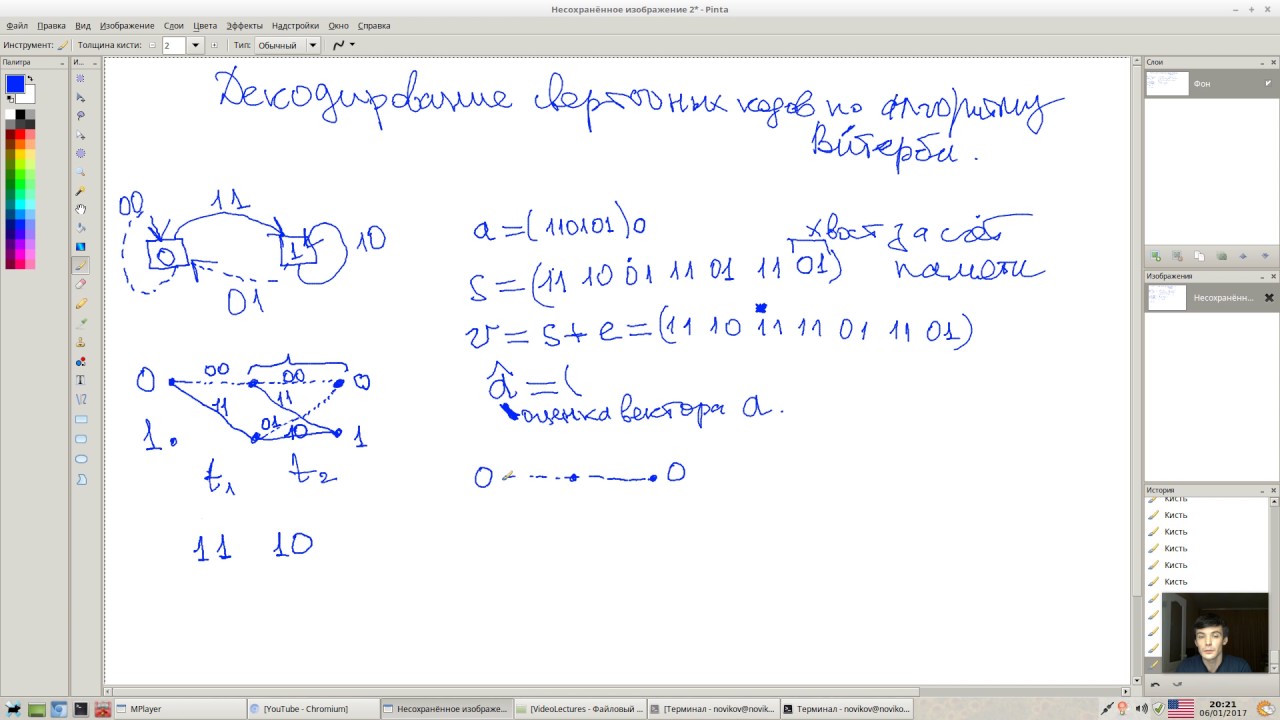 Несохранённое изображение 2* - Pinta
Файл Правка Вид Изображение Слои Цвета Эффекты Надстройки Окно Справка
Инструмент: Толщина кисти: 2 Тип: Обычный
Палитра
И...
Слои
Фон
Изображения
Несохранённ...
История
Кисть
Кисть
Кисть
Кисть
Кисть
Кисть
Декодирование сверточных кодов по алгоритму
Витерби.
00
11
0
1
10
01
a=(110101)0
хвост за счёт
памяти
s=(11 10 01 11 01 11 01)
v=s+e=(11 10 11 11 01 11 01)
â=(
оценка вектора a.
0 00 00 0
11 11
01
1 10 1
t1 t2
11 10
0 0
MPlayer
[YouTube - Chromium]
Несохранённое изображе...
[VideoLectures - Файловый ...
[Терминал - novikov@novik...
Терминал - novikov@noviko...
20:21
06/01/2017